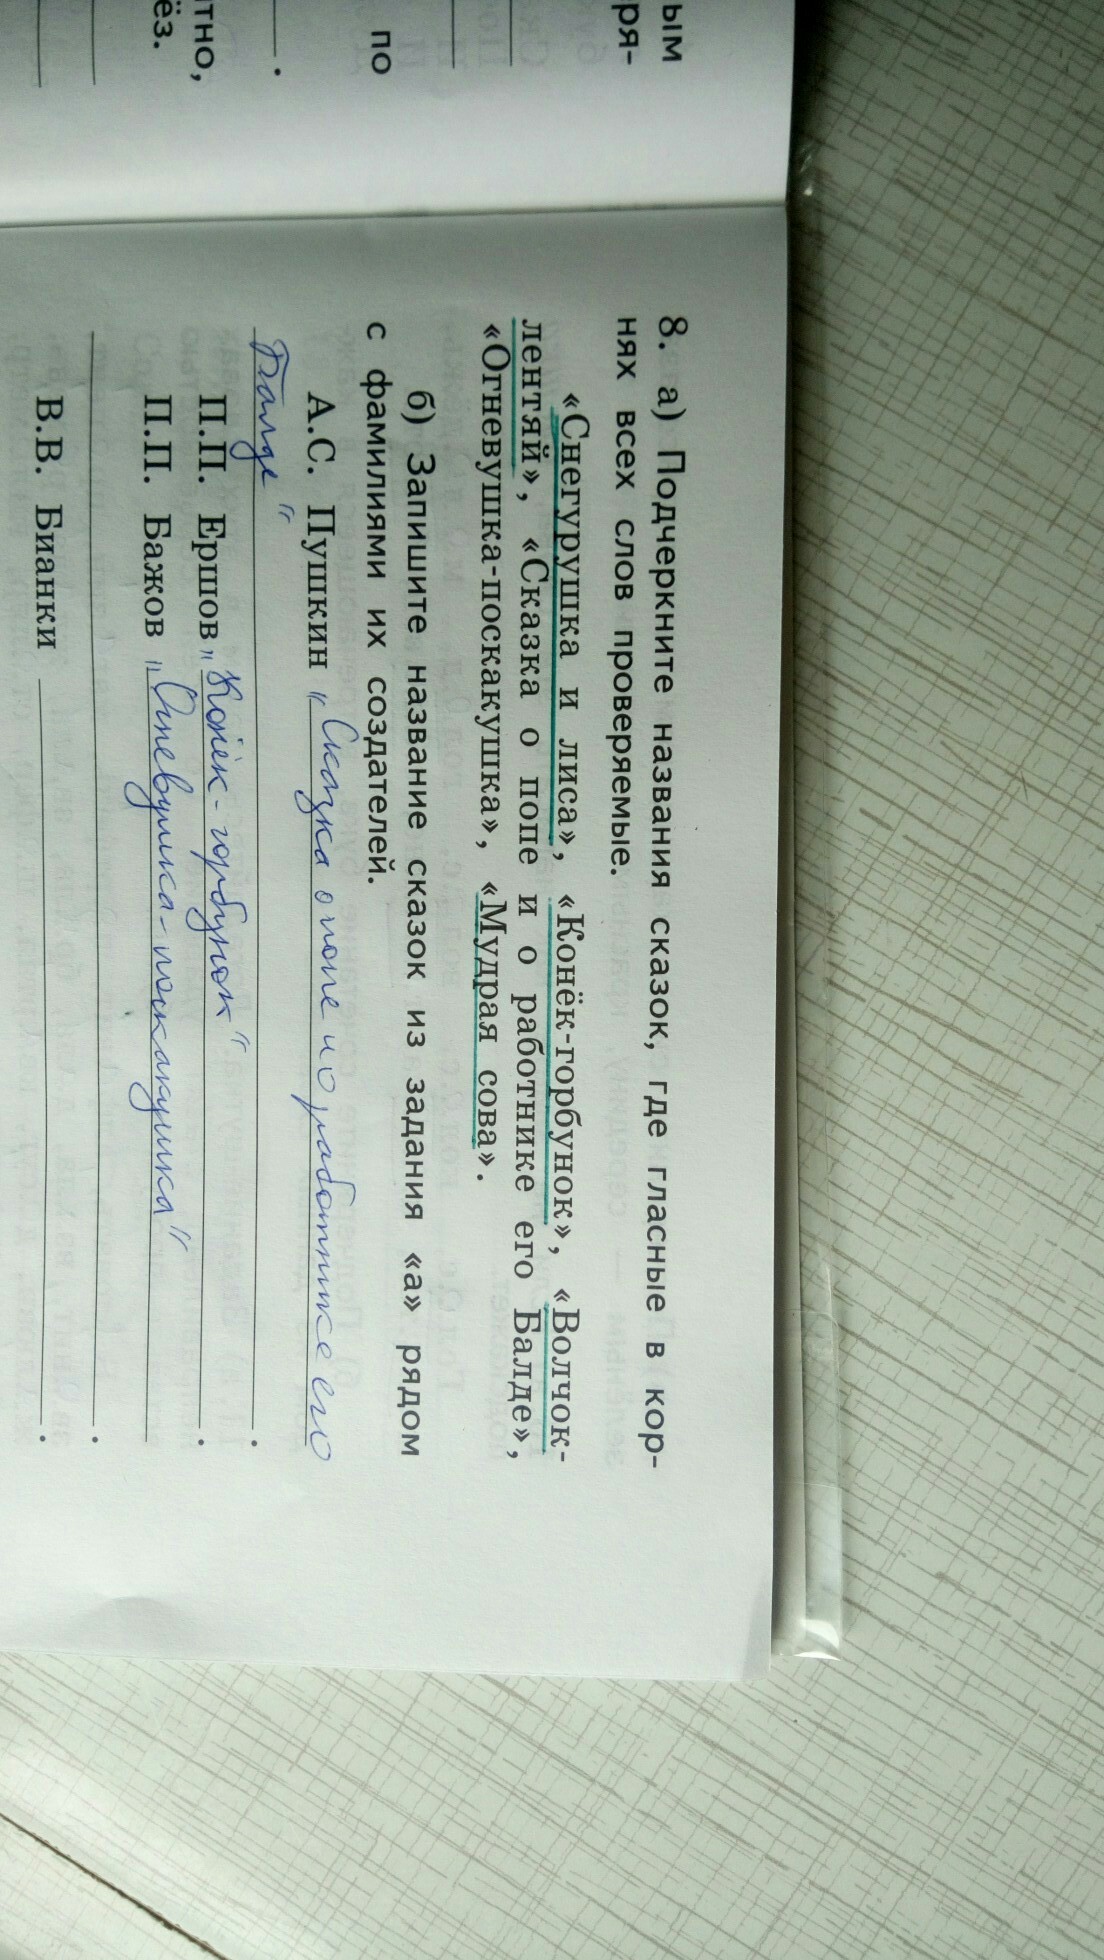 ым
ря-
по
.
тно,
ёз.
8. а) Подчеркните названия сказок, где гласные в кор-
нях всех слов проверяемые.
«Снегурушка и лиса», «Конёк-горбунок», «Волчок-
лентяй», «Сказка о попе и о работнике его Балде»,
«Огневушка-поскакушка», «Мудрая сова».
б) Запишите название сказок из задания «а» рядом
с фамилиями их создателей.
А.С. Пушкин „Сказка о попе и о работнике его
Балде“ .
П.П. Ершов „Конёк-горбунок“ .
П.П. Бажов „Огневушка-поскакушка“
.
В.В. Бианки .